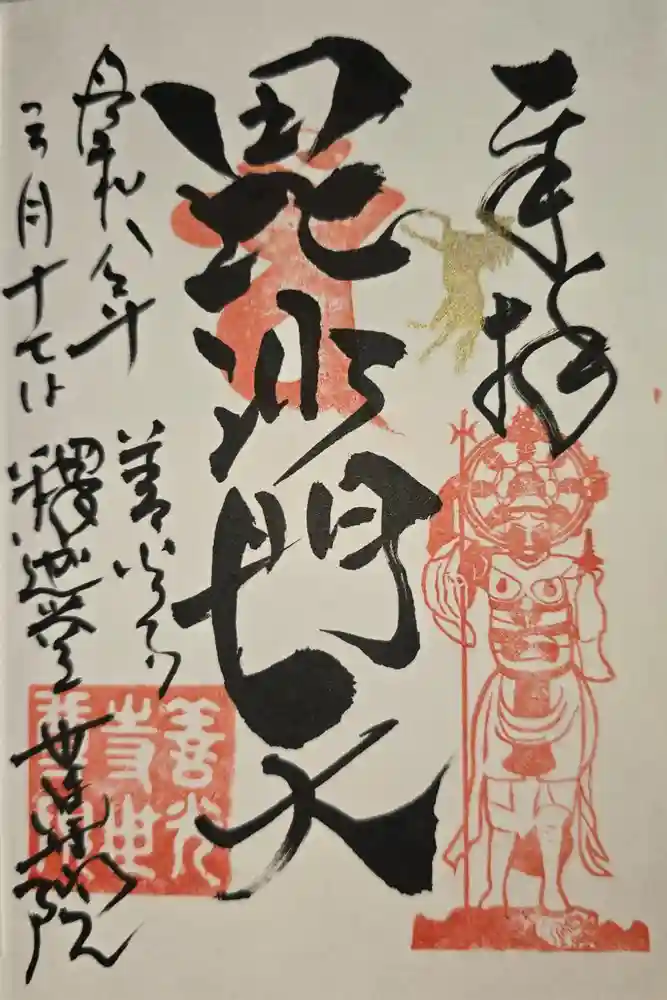 奉拝
毘沙門天
令和八年
月十
善光寺
釋迦堂 世尊院
善光
寺世
尊院